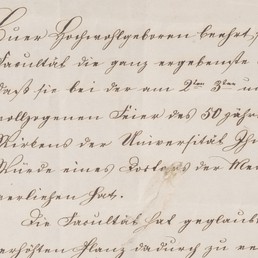 Euer Hochwohlgeboren beehrt
Facultät die ganz ergebenste
daß sie bei der am 2ten 3ten un
vollzogenen Feier des 50 jähr
Wirkens der Universität Ih
Würde eines Doctors der Me
verliehen hat.
Die Facultät hat geglaub
erhöhten Glanz dadurch zu ve